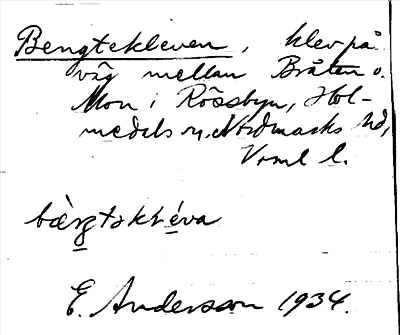 Bengtekleven, klev på
väg mellan Bråten o.
Mon i Rössbyn, Hol-
medals sn, Nordmarks hd,
Vrml l.
E. Andersson 1934.